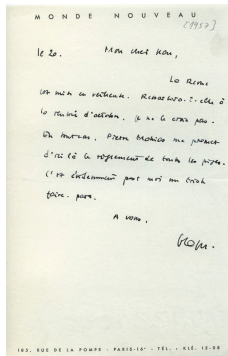 MONDE NOUVEAU
[1957]
le 20. Mon cher
La Revue
est mise en veilleuse. elle à
la rentrée d'octobre, je ne le crois pas.
Pierre me promet
d'ici là le règlement de toutes les piges.
C'est évidemment pour moi un
faire-part.
A vous,
185, RUE DE LA POMPE - PARIS-16e - TÉL. : KLÉ. 12-08